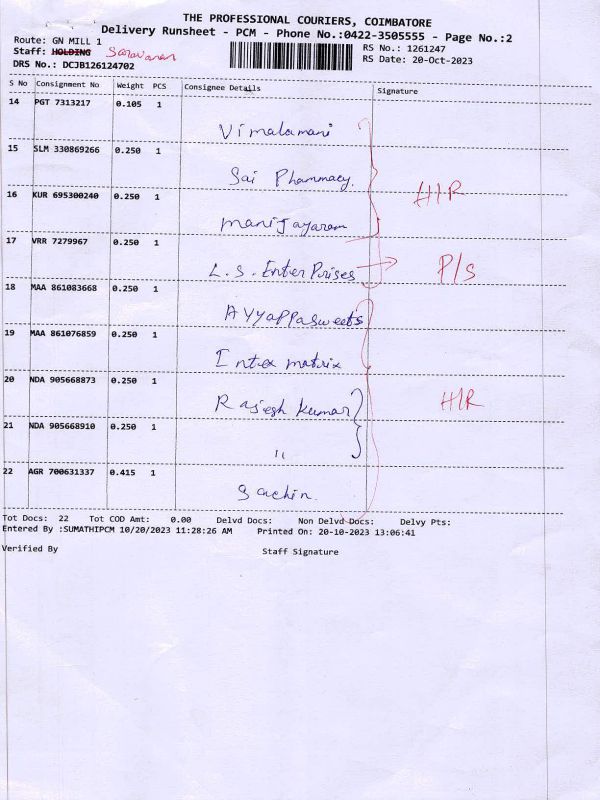 THE PROFESSIONAL COURIERS, COIMBATORE
Delivery Runsheet - PCM - Phone No.:0422-3505555 - Page No.:2
Route: GN MILL 1
RS No.: 1261247
Staff: HOLDING Saravanan
RS Date: 20-Oct-2023
DRS No.: DCJB126124702
S No Consignment No Weight PCS Consignee Details Signature
14 PGT 7313217 0.105 1
Vimalamani
15 SLM 330869266 0.250 1
Sai Pharmacy.
16 KUR 695300240 0.250 1
H/R
manijayaram
17 VRR 7279967 0.250 1
L.S.EnterPrises P/S
18 MAA 861083668 0.250 1
Ayyappasweets
19 MAA 861076859 0.250 1
Intex matrix
20 NDA 905668873 0.250 1
Rajesh Kumar H/R
21 NDA 905668910 0.250 1
"
22 AGR 700631337 0.415 1
Sachin.
Tot Docs: 22 Tot COD Amt: 0.00 Delvd Docs: Non Delvd Docs: Delvy Pts:
Entered By :SUMATHIPCM 10/20/2023 11:28:26 AM Printed On: 20-10-2023 13:06:41
Verified By Staff Signature